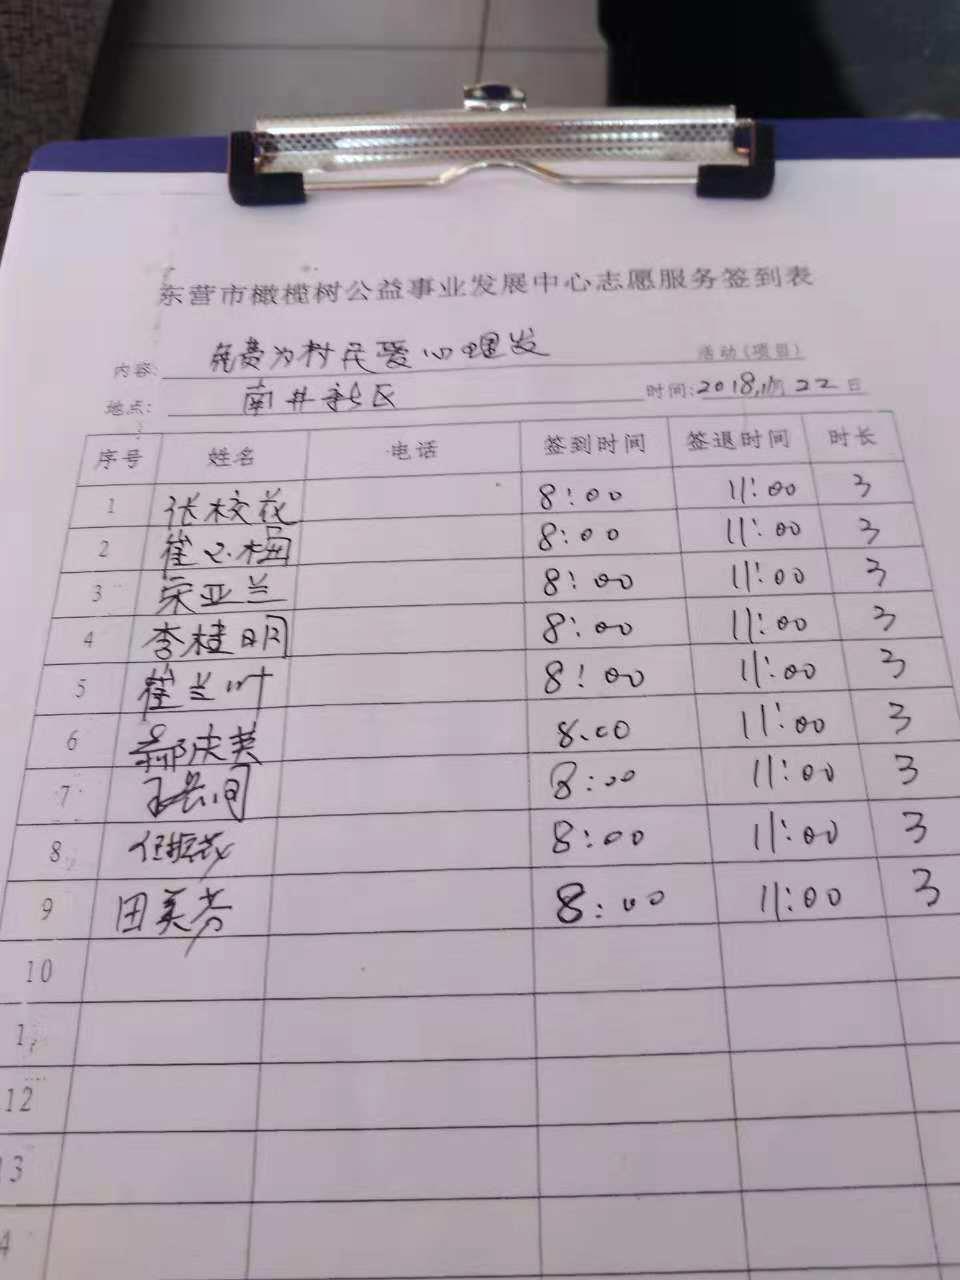 东营市橄榄树公益事业发展中心志愿服务签到表
内容: 免费为村民爱心理发 活动(项目)
地点: 南井新区 时间:2018,11月22日
序号 姓名 电话 签到时间 签退时间 时长
1 张校花 8:00 11:00 3
2 崔心梅 8:00 11:00 3
3 宋亚兰 8:00 11:00 3
4 李桂明 8:00 11:00 3
5 崔兰叶 8:00 11:00 3
6 8.00 11:00 3
7 8:00 11:00 3
8 任振花 8:00 11:00 3
9 田美芳 8:00 11:00 3
10
1
12
13
4